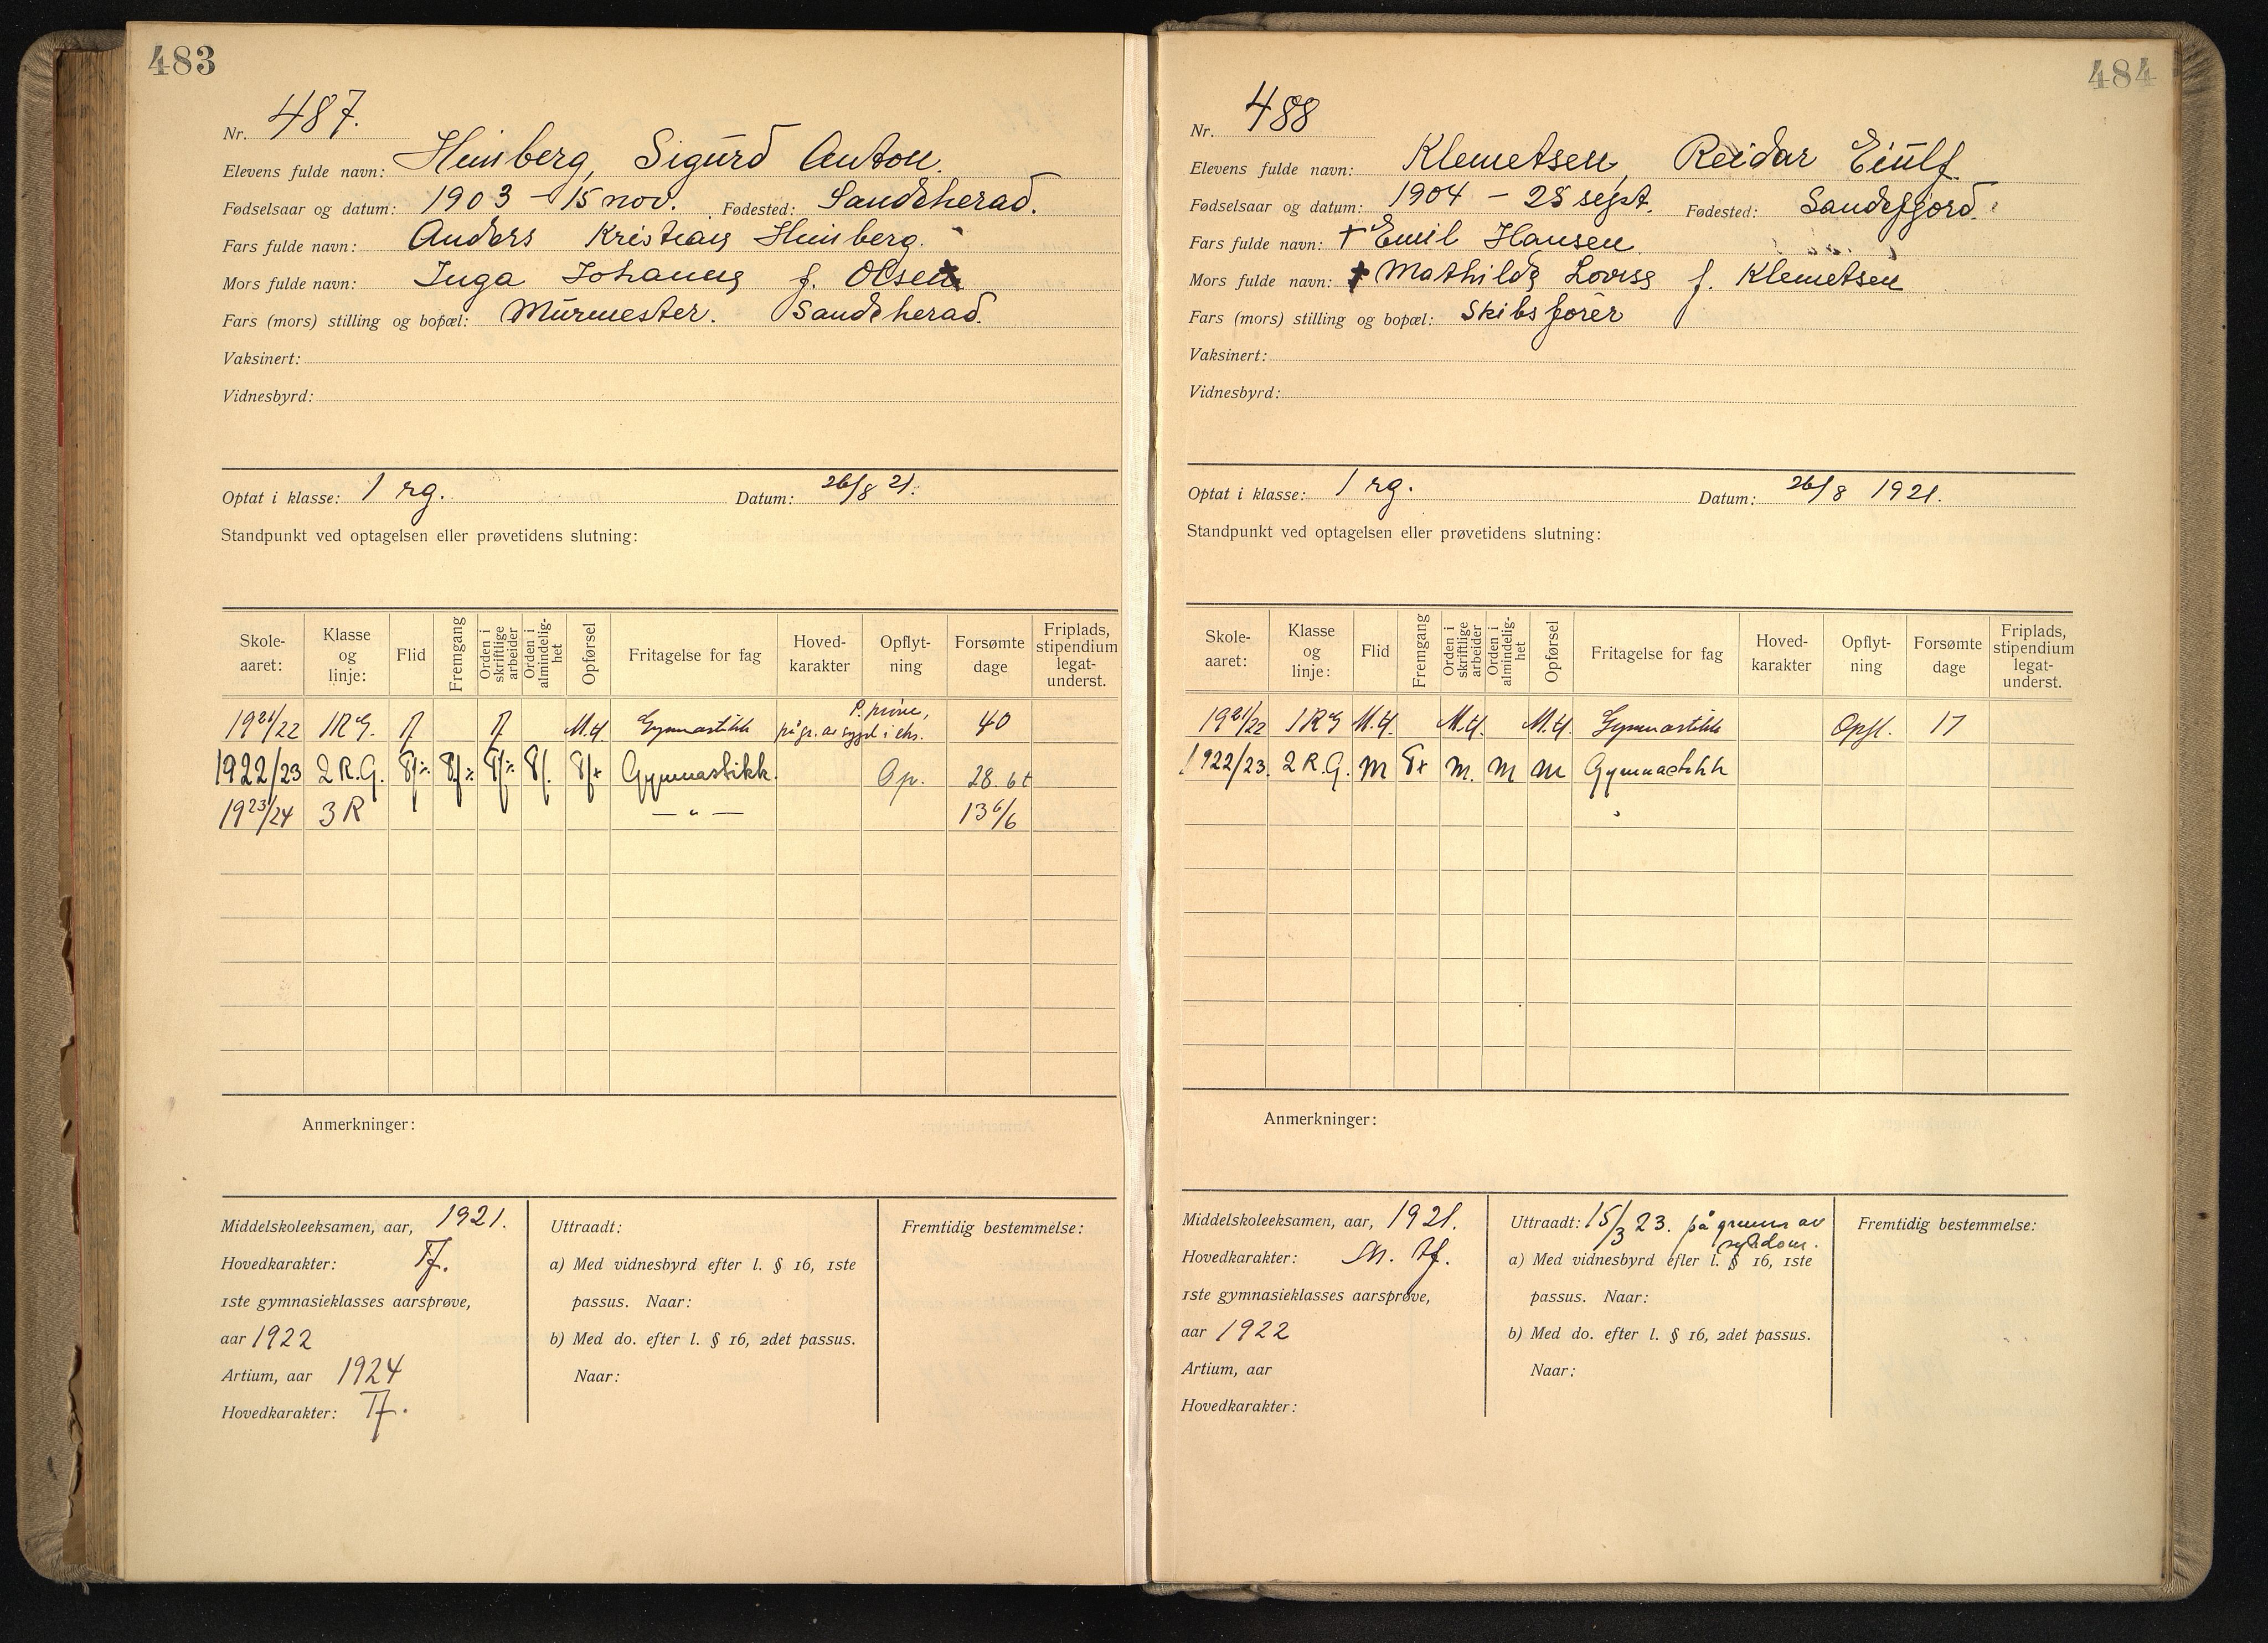 483
Nr. 487.
Elevens fulde navn: Himberg, Sigurd Anton.
Fødselsaar og datum: 1903 - 15 nov. Fødested: Sandeherad.
Fars fulde navn: Anders Kristian Himberg.
Mors fulde navn: Inga Johanne f. Olsen
Fars (mors) stilling og bopæl: Murmester. Sandeherad.
Vaksinert:
Vidnesbyrd:
Optat i klasse: 1 rg. Datum: 26/8 21.
Standpunkt ved optagelsen eller prøvetidens slutning:
Skole-aaret: Klasse og linje: Flid Fremgang Orden i skriftlige arbeider Orden i almindelig-het Opførsel Fritagelse for fag Hoved-karakter Opflyt-ning Forsømte dage Friplads, stipendium legat-underst.
1921/22 1RG. M.tf. Gymnastikk P. prøve, på gr. av sygd. i eks. 40
1922/23 2 R.G. Gymnastikk. Op. 28. 6t
1923/24 3 R — " — 13 6/6
Anmerkninger:
Middelskoleeksamen, aar, 1921.
Hovedkarakter: Tf.
1ste gymnasieklasses aarsprøve,
aar 1922
Artium, aar 1924
Hovedkarakter: Tf.
Uttraadt:
a) Med vidnesbyrd efter l. § 16, 1ste
passus. Naar:
b) Med do. efter l. § 16, 2det passus.
Naar:
Fremtidig bestemmelse:
484
Nr. 488
Elevens fulde navn: Klemetsen, Reidar Eiulf.
Fødselsaar og datum: 1904 - 25 sept. Fødested: Sandefjord.
Fars fulde navn: + Emil Hansen
Mors fulde navn: + Mathilde Lovise f. Klemetsen
Fars (mors) stilling og bopæl: Skibsfører
Vaksinert:
Vidnesbyrd:
Optat i klasse: 1 rg. Datum: 26/8 1921.
Standpunkt ved optagelsen eller prøvetidens slutning:
Skole-aaret: Klasse og linje: Flid Fremgang Orden i skriftlige arbeider Orden i almindelig-het Opførsel Fritagelse for fag Hoved-karakter Opflyt-ning Forsømte dage Friplads, stipendium legat-underst.
1921/22 1RG M.tf. M.tf. M.tf. Gymnastikk Opfl. 17
1922/23. 2 R.G. M T+ M. M M Gymnastikk
Anmerkninger:
Middelskoleeksamen, aar, 1921.
Hovedkarakter: M. tf.
1ste gymnasieklasses aarsprøve,
aar 1922
Artium, aar
Hovedkarakter:
Uttraadt: 15/3 23. på grunn av sykdom.
a) Med vidnesbyrd efter l. § 16, 1ste
passus. Naar:
b) Med do. efter l. § 16, 2det passus.
Naar:
Fremtidig bestemmelse: